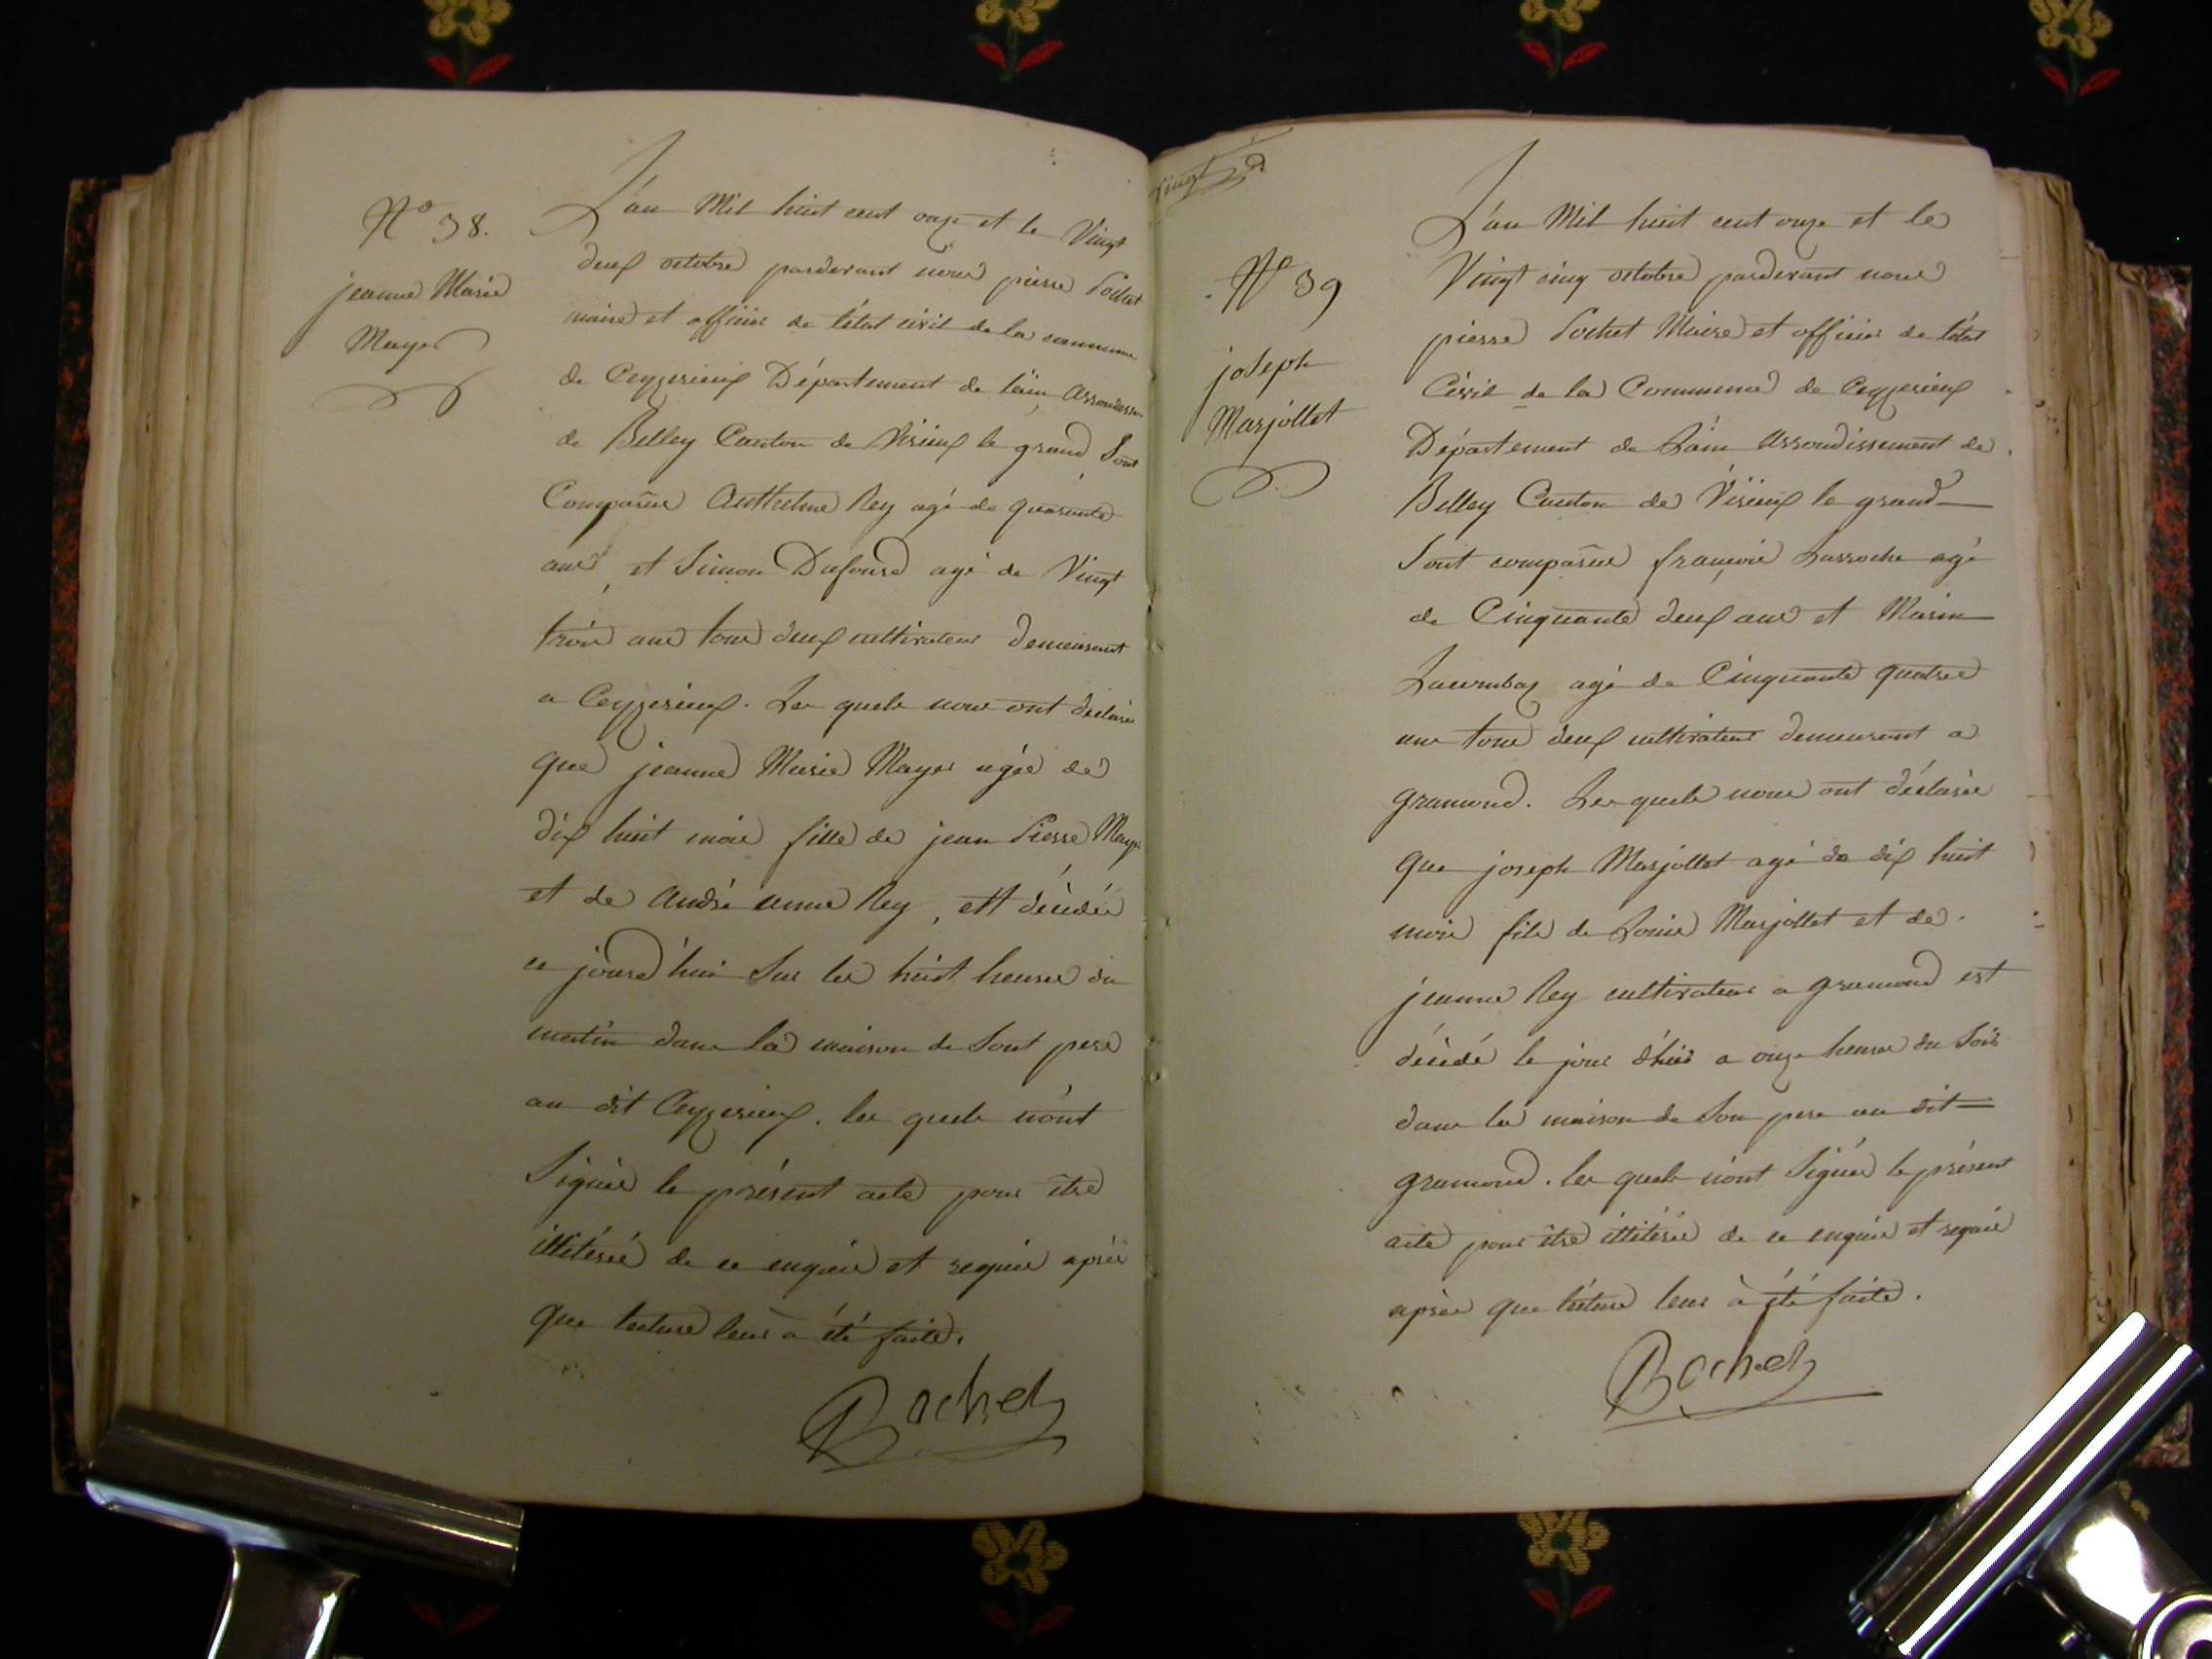 N° 38.
jeanne Marie
Mayer
L'an Mil huit cent onze et le Vingt
deux octobre pardevant nous pierre Pochet
maire et officier de l'état civil de la commune
de Ceyzerieux Département de l'ain Arrondissem
de Belley Canton de Virieux le grand Sont
Comparûe Anthelme Rey agé de quarante
ans, et Simon Dufour agé de Vingt
trois ans tous deux cultivateur demeurant
a Ceyzerieux. Les quels nous ont déclaré
que jeanne Marie Mayer agée de
dix huit mois fille de jean Pierre Mayer
et de André anne Rey, ett décédée
ce jourd'hui Sur les huit heures du
matin dans la maison de Sont pere
au dit Ceyzerieux. les quels n'ont
Signée le présent acte pour être
illitérée de ce enquis et requis après
que lecture leur a été faite.
Bochet
Vingt
N° 39
joseph
Marjollet
L'an Mil huit cent onze et le
Vingt cinq octobre pardevant nous
pierre Pochet Maire et officier de l'état
Civil de la Commune de Ceyzerieux
Département de L'ain Arrondissement de
Belley Canton de Virieux le grand
Sont comparûe françois Larroche agé
de Cinquante deux ans et Marin
agé de Cinquante quatre
ans tous deux cultivateur demeurant a
gramond. Les quels nous ont déclarée
que joseph Marjollet agé de dix huit
mois fils de Louis Marjollet et de
jeanne Rey cultivateur a gramond est
décédé le jour d'hier a onze heures du Soir
dans la maison de Son pere au dit
gramond. les quels n'ont Signée le présent
acte pour être illitérée de ce enquis et requis
après que lecture leur à été faite.
Bochet